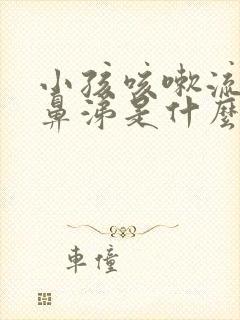 小孩咳嗽流
鼻涕是什麼
車憧